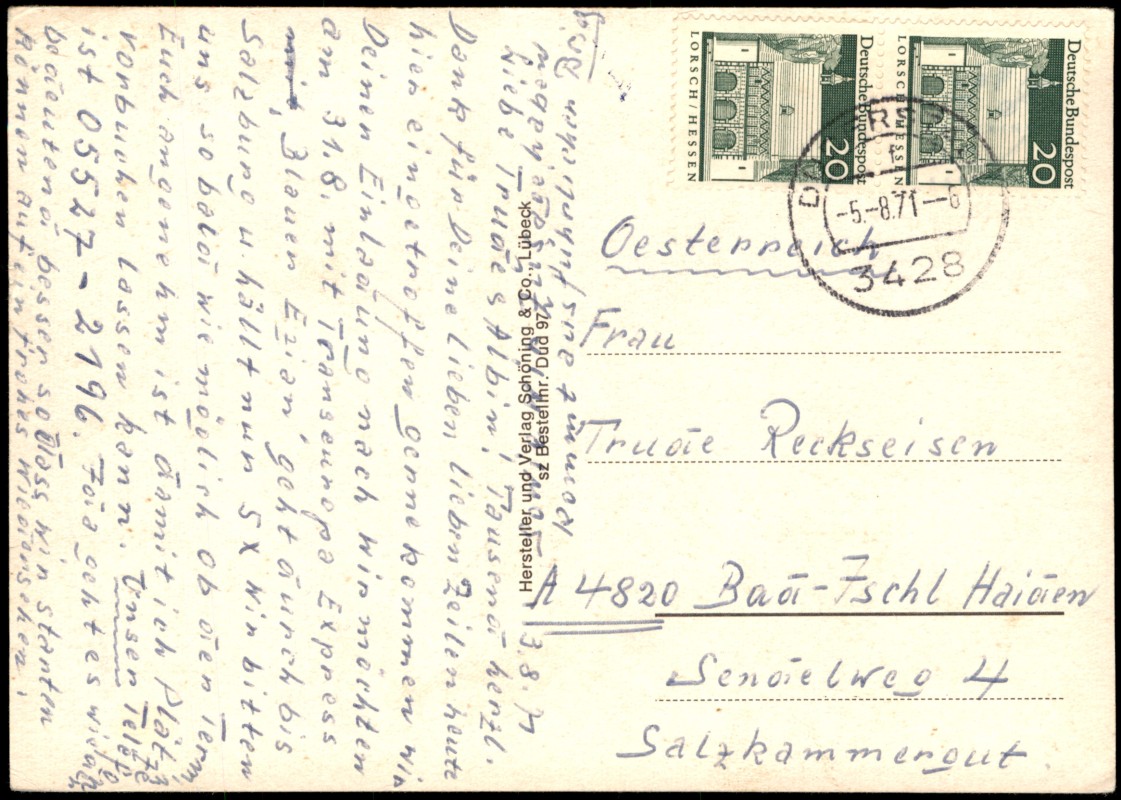 Deutsche Bundespost
20
LORSCH/HESSEN
Deutsche Bundespost
20
LORSCH/HESSEN
-5.-8.71--8
3428
Oesterreich
Frau
Trudie Reckseisen
A 4820 Bad-Ischl Haiden
Sendelweg 4
Salzkammergut
Hersteller und Verlag Schöning & Co., Lübeck
sz Bestellnr. Dud 97
3.8.71
Liebe Trude & Albin! Tausend herzl.
Dank für Deine lieben lieben Zeilen heute
hier eingetroffen gerne kommen wir
Deinen Einladung nach wir möchten
am 31.8. mit Transeuropa Express
Blauen Ezian, geht durch bis
Salzburg u. hällt nur 5x wir bitten
uns so bald wie möglich ob den Term
Euch angenehm ist damit ich Plätze
vorbuchen lassen kann. Unser Telef.
ist 05527-2196. Zoia geht es wieder
bedeutend besser so dass wir starten
können auf ein frohes Wiedersehen.